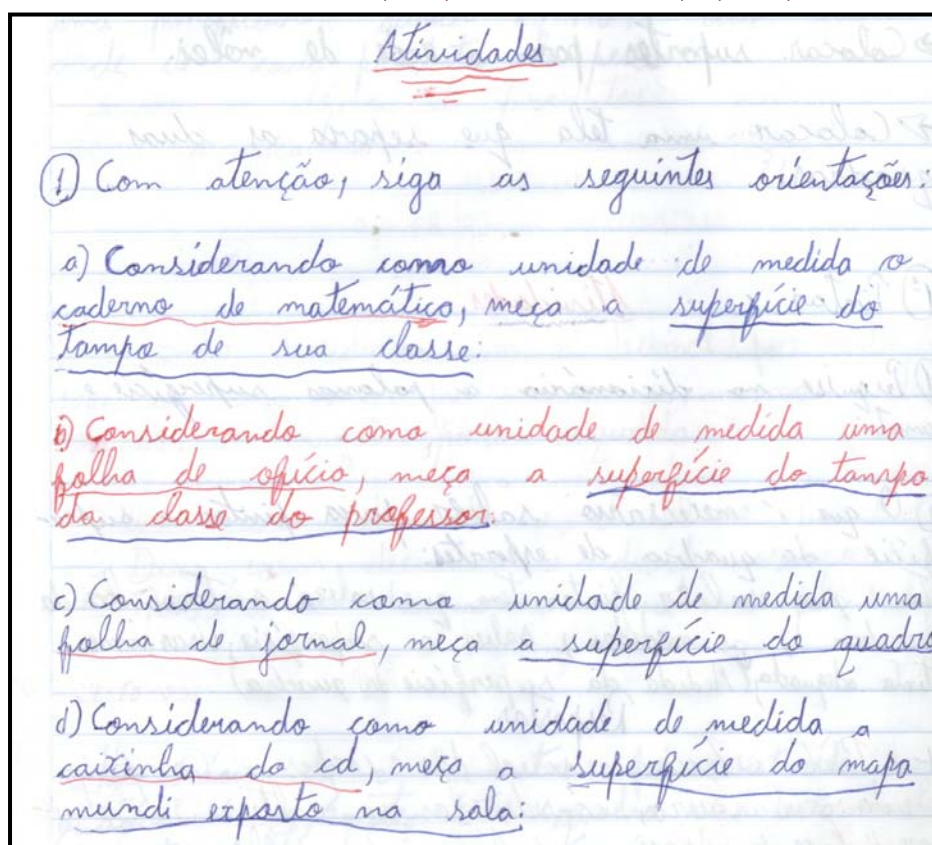 Atividades
① Com atenção, siga as seguintes orientações:
a) Considerando como unidade de medida o
caderno de matemática, meça a superfície do
tampo de sua classe:
b) Considerando como unidade de medida uma
folha de ofício, meça a superfície do tampo
da classe do professor:
c) Considerando como unidade de medida uma
folha de jornal, meça a superfície do quadro
d) Considerando como unidade de medida a
caixinha do cd, meça a superfície do mapa
mundi exposto na sala: